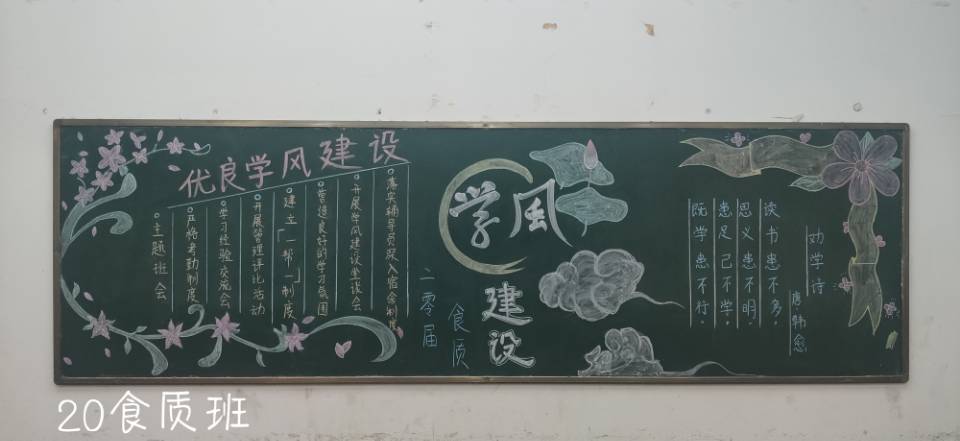 优良学风建设
○落实辅导员深入宿舍制度
○开展学风建设坐谈会
○营造良好的学习氛围
○建立「一帮一」制度
○开展管理评比活动
○学习经验交流会
○严格考勤制度
○主题班会
学风
建设
二零届
食质
劝学诗
唐韩愈
读书患不多，
思义患不明。
患足己不学，
既学患不行。
20食质班